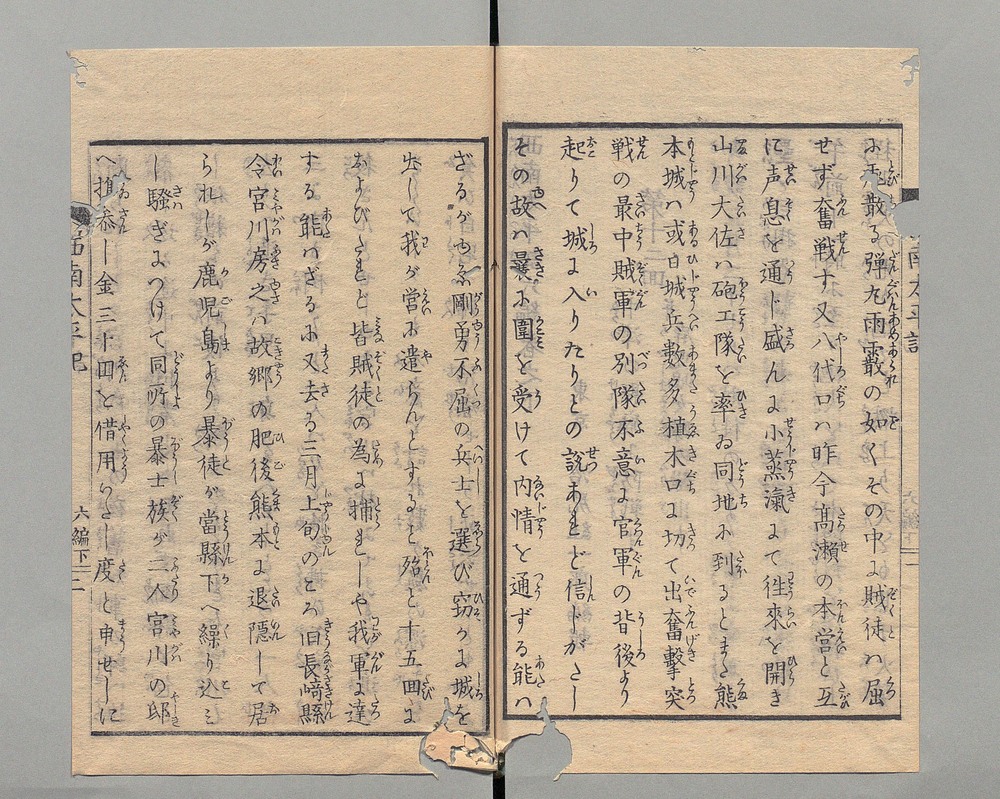 に飛散る弾丸雨霰の如くその中に賊徒ハ屈
せず奮戦す又八代口ハ昨今髙瀬の本営と互
に声息を通ト盛んに小蒸氣にて徃來を開き
山川大佐ハ砲工隊を率ゐ同地に到るとまた熊
本城ハ或日城兵數多植木口に切て出奮擊突
戦の最中賊軍の別隊不意に官軍の背後より
起りて城に入りたりとの説あれど信ドがたし
その故ハ曩に圍を受けて内情を通ずる能ハ
ざるがゆゑ剛勇不屈の兵士を選び窃かに城を
出して我が営に遣らんとすること殆と十五回に
およびたれど皆賊徒の為に捕れしや我軍に達
する能ハざるに又去る三月上旬のころ旧長﨑縣
令宮川房之ハ故郷の肥後熊本に退隱して居
られしが鹿児島より暴徒が當縣下へ繰り込ミ
し騒ぎにつけて同所の暴士族が二人宮川の邸
へ推参し金三十円を借用いたし度と申せしに
西南太平記
六編下
二